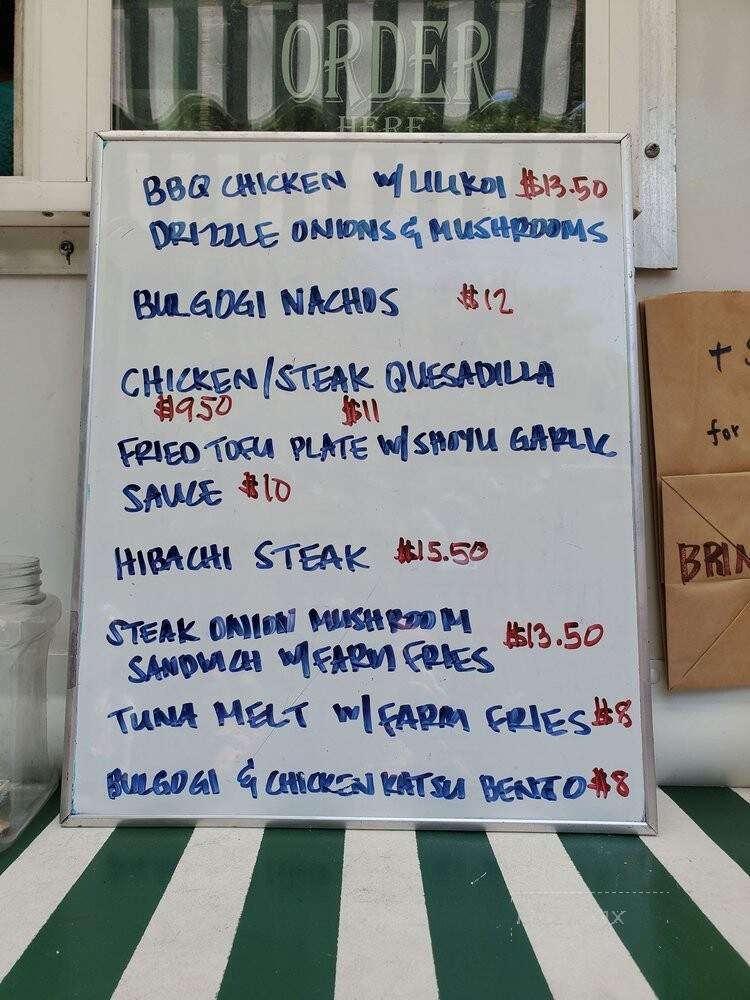 ORDER
HERE
BBQ CHICKEN W/ LILIKOI $13.50
DRIZZLE ONIONS & MUSHROOMS
BULGOGI NACHOS $12
CHICKEN/STEAK QUESADILLA
$9.50 $11
FRIED TOFU PLATE W/SHOYU GARLIC
SAUCE $10
HIBACHI STEAK $15.50
STEAK ONION MUSHROOM $13.50
SANDWICH W/FARM FRIES
TUNA MELT W/FARM FRIES $8
BULGOGI & CHICKEN KATSU BENTO $8
+
for
BRIN